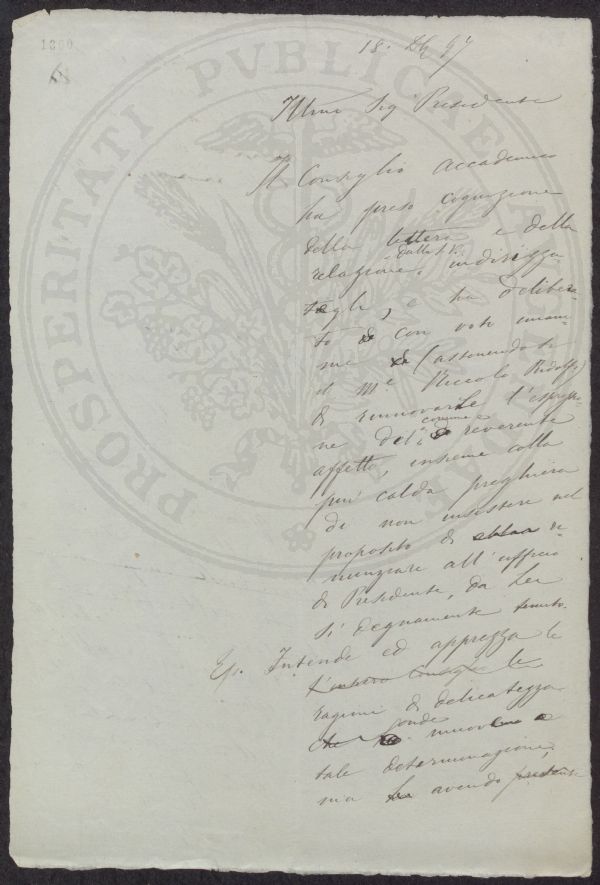 1860
18. Dbr 67
PROSPERITATI PVBLICAE AVGENDAE
Illmo Sig Presidente
Il Consiglio Accademico
ha preso cognizione
della lettera e della
relazione, dalla S.V. indirizza-
tagli, e ha delibera-
to con voto unani-
me (astenendosi
il Me Niccolò Ridolfi)
di rinnovarLe l'espressio-
ne del comune e reverente
affetto, insieme colla
più calda preghiera
di non insistere nel
proposito di ri-
nunziare all'ufficio
di Presidente, da Lei
sì degnamente tenuto.
Intende ed apprezza le
ragioni di delicatezza
onde muove
tale determinazione;
ma avendo presente